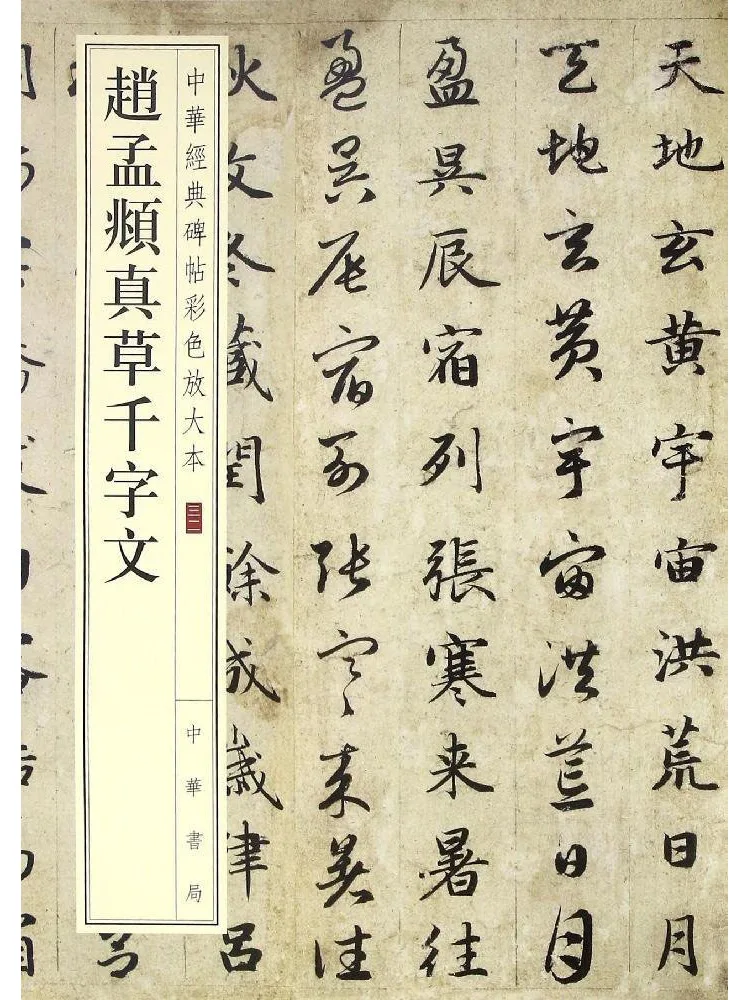 天地玄黄宇宙洪荒日月
天地玄黄宇宙洪荒日月
盈昃辰宿列張寒来暑往
盈昃辰宿列張寒来暑往
秋收冬藏閏餘成歲律吕
中華經典碑帖彩色放大本
中華書局
趙孟頫真草千字文